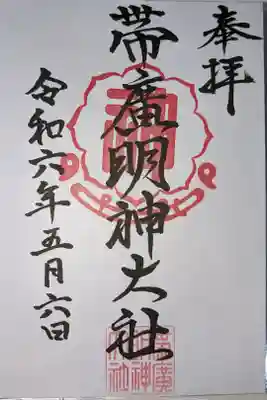 奉拝
帶廣明神大社
令和六年五月六日